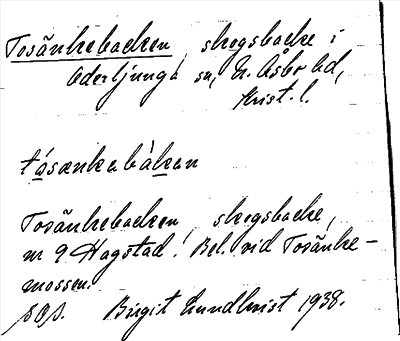 Tosänkebacken, skogsbacke i
Oderljunga sn, N. Åsbo hd,
Krist. l.
tósænkabàkan
Tosänkebacken, skogsbacke,
m 9 Hagstad. Bel. vid Tosänke-
mossen.
Birgit Lundkvist 1938.